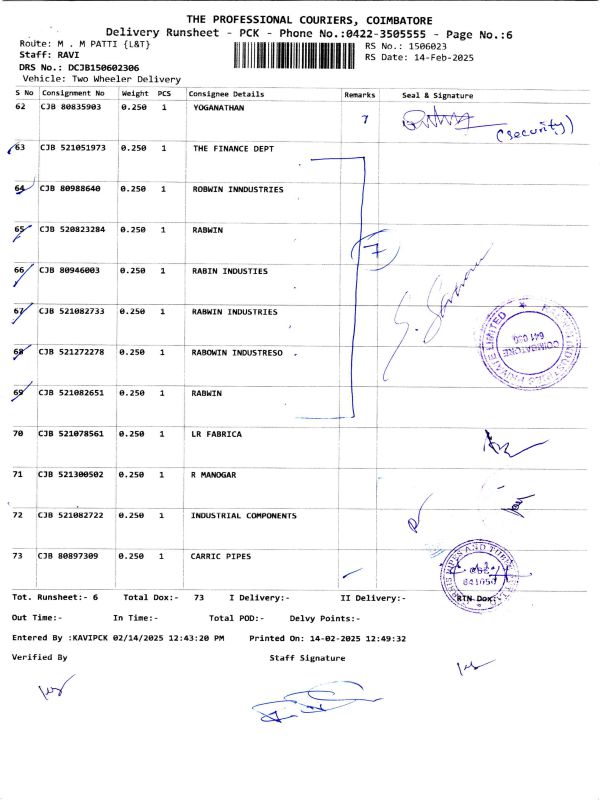 THE PROFESSIONAL COURIERS, COIMBATORE
Delivery Runsheet - PCK - Phone No.:0422-3505555 - Page No.:6
Route: M . M PATTI {L&T} RS No.: 1506023
Staff: RAVI RS Date: 14-Feb-2025
DRS No.: DCJB150602306
Vehicle: Two Wheeler Delivery
S No Consignment No Weight PCS Consignee Details Remarks Seal & Signature
62 CJB 80835903 0.250 1 YOGANATHAN
(Security)
63 CJB 521051973 0.250 1 THE FINANCE DEPT
64 CJB 80988640 0.250 1 ROBWIN INNDUSTRIES
65 CJB 520823284 0.250 1 RABWIN
7
66 CJB 80946003 0.250 1 RABIN INDUSTIES
67 CJB 521082733 0.250 1 RABWIN INDUSTRIES
68 CJB 521272278 0.250 1 RABOWIN INDUSTRESO .
COIMBATORE
PRIVATE LIMITED
69 CJB 521082651 0.250 1 RABWIN
70 CJB 521078561 0.250 1 LR FABRICA
71 CJB 521300502 0.250 1 R MANOGAR
72 CJB 521082722 0.250 1 INDUSTRIAL COMPONENTS
73 CJB 80897309 0.250 1 CARRIC PIPES
Tot. Runsheet:- 6 Total Dox:- 73 I Delivery:- II Delivery:- RTN Dox:
Out Time:- In Time:- Total POD:- Delvy Points:-
Entered By :KAVIPCK 02/14/2025 12:43:20 PM Printed On: 14-02-2025 12:49:32
Verified By Staff Signature